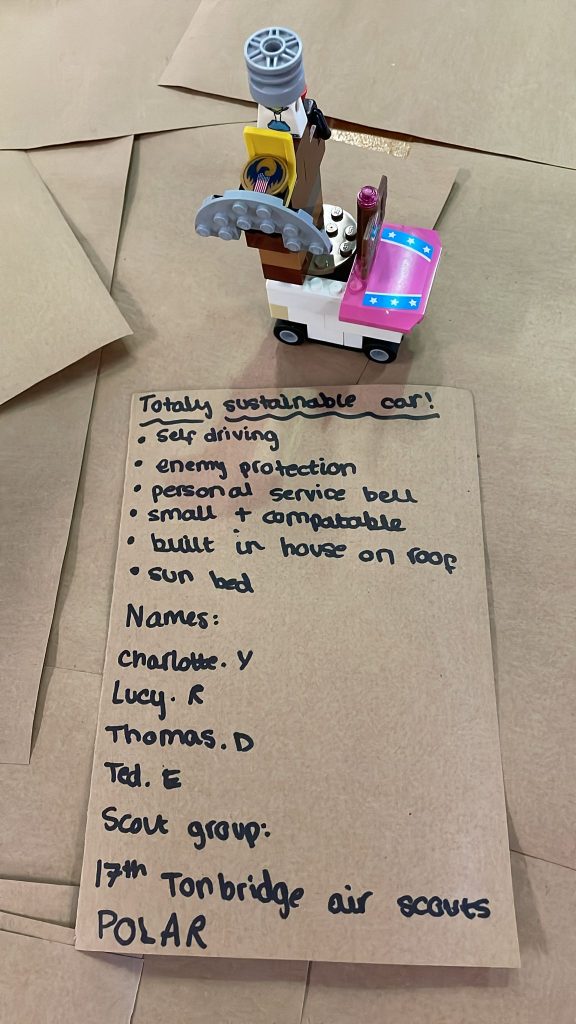 Totaly sustainable car!
• self driving
• enemy protection
• personal service bell
• small + compatable
• built in house on roof
• sun bed
Names:
Charlotte. Y
Lucy. R
Thomas. D
Ted. E
Scout group:
17th Tonbridge air scouts
POLAR